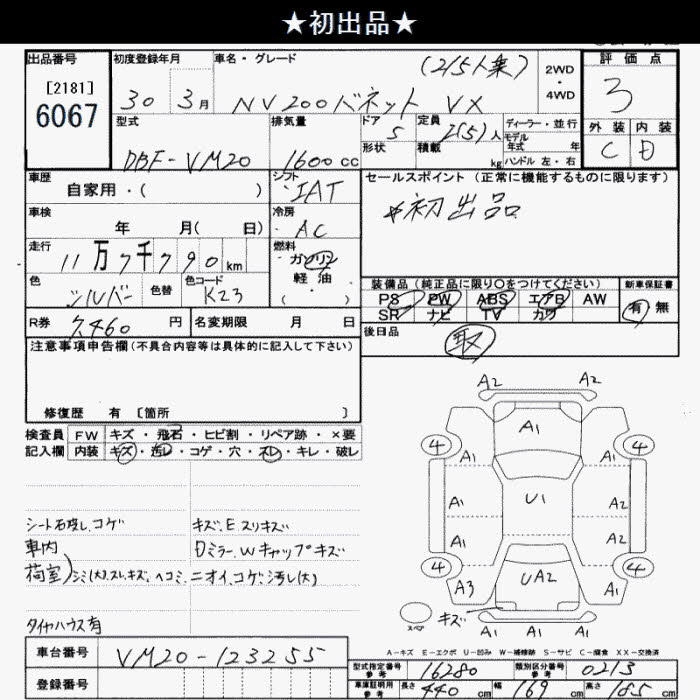 ★初出品★
出品番号 初度登録年月 車名・グレード 評価点
[2181]
6067
30 3月 NV200バネット VX (2/5人乗)
2WD
・
4WD
3
型式 排気量 ドア 定員 ディーラー・並行 外装 内装
DBF-VM20 1600cc 5 2(5)人 モデル年式 年
形状 積載 kg ハンドル 左・右
C D
車歴 シフト セールスポイント(正常に機能するものに限ります)
自家用・( ) IAT
*初出品
車検 冷房
年 月( 日) AC
走行 燃料
11万7千790km ガソリン
軽油
( ・ )
色 色替 色コード
シルバー K23
装備品(純正品に限り○をつけてください) 新車保証書
PS PW ABS エアB AW
SR ナビ TV カワ
有 無
R券 7,460円 名変期限 月 日
後日品 取
注意事項申告欄(不具合内容等は具体的に記入して下さい)
修復歴 有 [箇所 ]
検査員 FW キズ・飛石・ヒビ割・リペア跡・×要
記入欄 内装 キズ・汚レ・コゲ・穴・スレ・キレ・破レ
シート破し.コゲ キズ.E.スリキズ
車内 Dミラー.Wキャップキズ
荷室)シミ(大).スレ.キズ.ヘコミ.ニオイ.コゲ.汚し(大)
タイヤハウス有
A2 A2
4 A1 4
A1 A1
A1 U1 A2
A1 A2
4 4
A3 UA2 A1
スペア キズ
A1 A1 A1
A-キズ E-エクボ U-凹み W-補修跡 S-サビ C-腐食 XX-交換済
車台番号 VM20-123255
登録番号
型式指定番号参考 16280 類別区分番号参考 0213
車庫証明用参考 長さ 440cm 幅 169cm 高さ 185cm